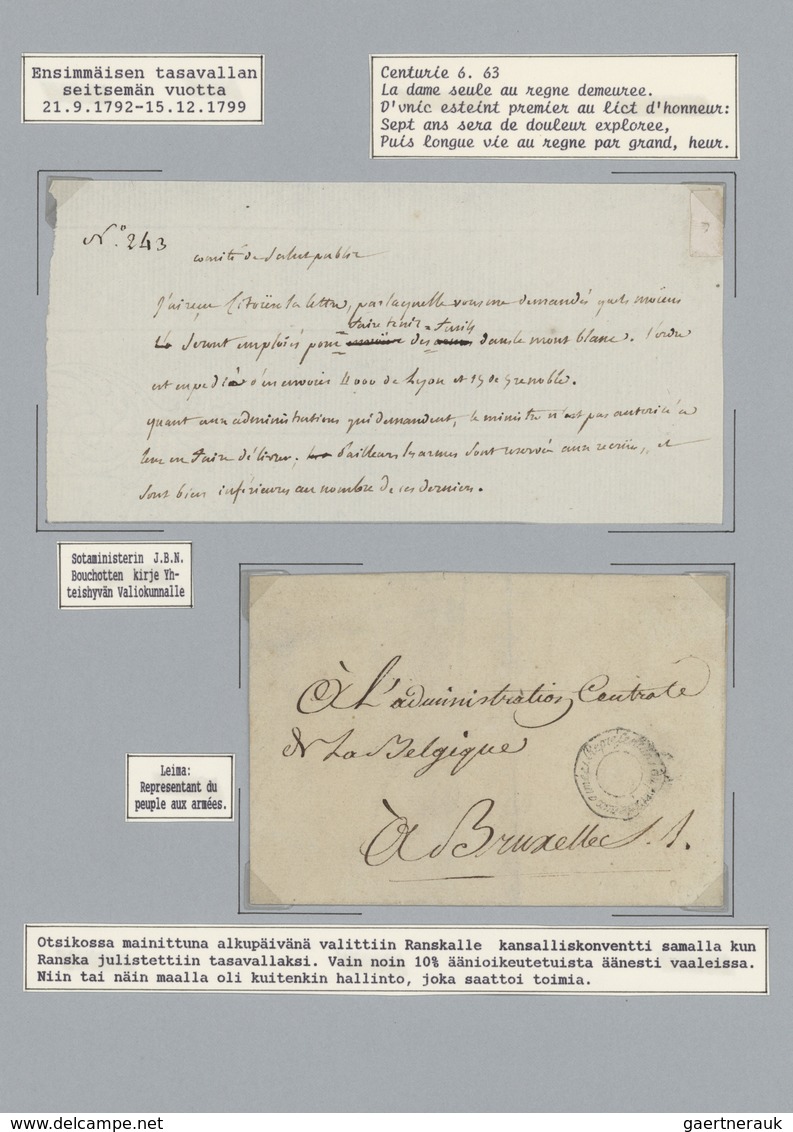 Ensimmäisen tasavallan
seitsemän vuotta
21.9.1792-15.12.1799
Centurie 6. 63
La dame seule au regne demeuree.
D'vnic esteint premier au lict d'honneur:
Sept ans sera de douleur exploree,
Puis longue vie au regne par grand, heur.
N.° 243
comité de Salut public
J'ai reçu Citoïen la lettre, par laquelle vous me demandés quels moïens
faire tenir = fusils
Seront emploiés pour des dans le mont blanc. l'ordre
est expedié d'en envoier 4000 de Lyon et 15 de Grenoble.
quant aux administrations qui demandent, le ministre n'est pas autorisé a
leur en faire délivrer, d'ailleurs les armes sont reservée aux recrües, et
sont bien inférieures au nombre de ces derniers.
Sotaministerin J.B.N.
Bouchotten kirje Yh-
teishyvän Valiokunnalle
À L'administration Centrale
de La Belgique
À Bruxelles
Leima:
Representant du
peuple aux armées.
Otsikossa mainittuna alkupäivänä valittiin Ranskalle kansalliskonventti samalla kun
Ranska julistettiin tasavallaksi. Vain noin 10% äänioikeutetuista äänesti vaaleissa.
Niin tai näin maalla oli kuitenkin hallinto, joka saattoi toimia.
delcampe.net
gaertnerauk